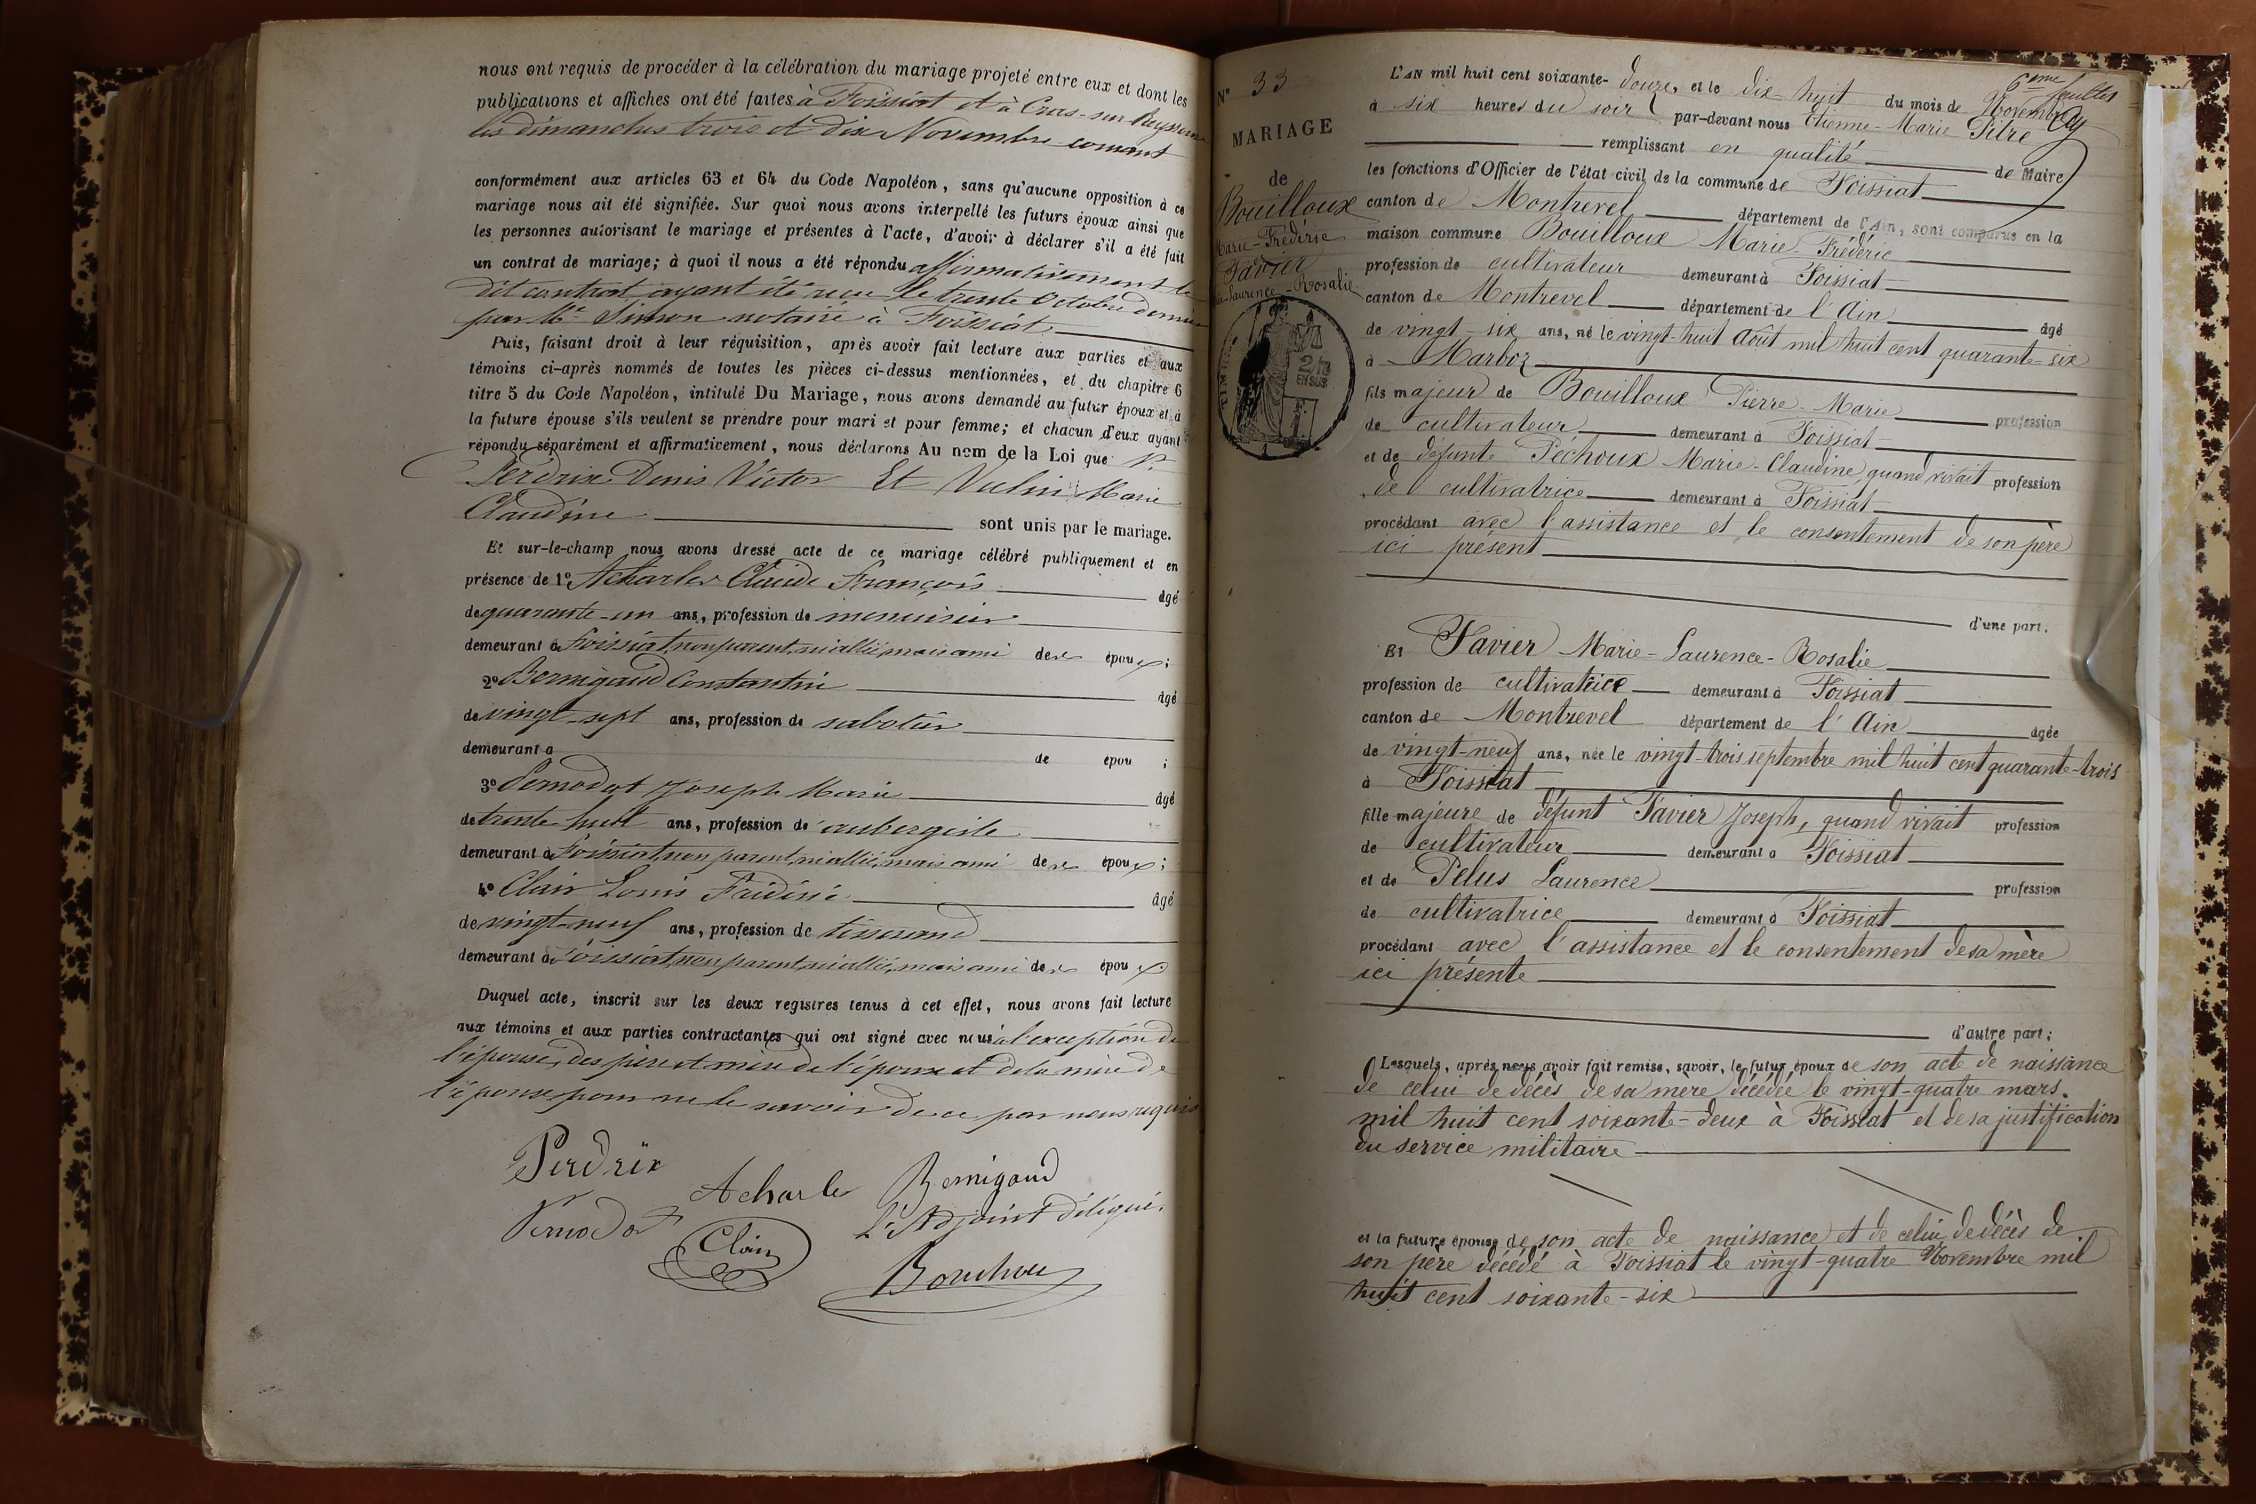 nous ont requis de procéder à la célébration du mariage projeté entre eux et dont les
publications et affiches ont été faites à Foissiat et à Cras-sur-Reyssouze
les dimanches trois et dix Novembre courant
conformément aux articles 63 et 64 du Code Napoléon, sans qu'aucune opposition à ce
mariage nous ait été signifiée. Sur quoi nous avons interpellé les futurs époux ainsi que
les personnes autorisant le mariage et présentes à l'acte, d'avoir à déclarer s'il a été fait
un contrat de mariage; à quoi il nous a été répondu affirmativement le
dit contrat ayant été reçu le trente Octobre dernier
par Me Simon notaire à Foissiat
Puis, faisant droit à leur réquisition, après avoir fait lecture aux parties et aux
témoins ci-après nommés de toutes les pièces ci-dessus mentionnées, et du chapitre 6
titre 5 du Code Napoléon, intitulé Du Mariage, nous avons demandé au futur époux et à
la future épouse s'ils veulent se prendre pour mari et pour femme; et chacun d'eux ayant
répondu séparément et affirmativement, nous déclarons Au nom de la Loi que
Perdrix Denis Victor Et Vulin Marie
Claudine sont unis par le mariage.
Et sur-le-champ nous avons dressé acte de ce mariage célébré publiquement et en
présence de 1º Acharles Claude François âgé
de quarante-un ans, profession de menuisier
demeurant à Foissiat, non parent, ni allié, mais ami des époux;
2º Bernigaud Constantin âgé
de vingt-sept ans, profession de sabotier
demeurant à de épou ;
3º Pernodat Joseph Marie âgé
de trente huit ans, profession de aubergiste
demeurant à Foissiat, non parent, ni allié, mais ami des époux;
4º Clair Louis Frédéric âgé
de vingt-neuf ans, profession de tisserand
demeurant à Foissiat, non parent, ni allié, mais ami des époux.
Duquel acte, inscrit sur les deux registres tenus à cet effet, nous avons fait lecture
aux témoins et aux parties contractantes qui ont signé avec nous à l'exception de
l'épouse, des père et mère de l'époux et de la mère de
l'épouse pour ne le savoir de ce par nous requis
Perdrix
Acharles Bernigaud
Pernodat L'Adjoint délégué.
Clair
Bouchou
6eme feuillet
Nº 33
MARIAGE
de
Bouilloux
Marie-Frédéric
Favier
Laurence-Rosalie
TIMBRE
2/10
EN SUS
L'AN mil huit cent soixante-douze, et le dix-huit du mois de Novembre
à six heures du soir par-devant nous Etienne-Marie Pitre
remplissant en qualité de Maire
les fonctions d'Officier de l'état civil de la commune de Foissiat
canton de Montrevel département de l'Ain, sont comparus en la
maison commune Bouilloux Marie Frédéric
profession de cultivateur demeurant à Foissiat
canton de Montrevel département de l'Ain âgé
de vingt-six ans, né le vingt-huit Août mil huit cent quarante-six
à Marboz
fils majeur de Bouilloux Pierre-Marie profession
de cultivateur demeurant à Foissiat
et de défunte Péchoux Marie-Claudine, quand vivait profession
de cultivatrice demeurant à Foissiat
procédant avec l'assistance et le consentement de son père
ici présent
d'une part.
Et Favier Marie-Laurence-Rosalie
profession de cultivatrice demeurant à Foissiat
canton de Montrevel département de l'Ain âgée
de vingt-neuf ans, née le vingt-trois septembre mil huit cent quarante-trois
à Foissiat
fille majeure de défunt Favier Joseph, quand vivait profession
de cultivateur demeurant à Foissiat
et de Pélus Laurence profession
de cultivatrice demeurant à Foissiat
procédant avec l'assistance et le consentement de sa mère
ici présente
d'autre part;
Lesquels, après nous avoir fait remise, savoir, le futur époux de son acte de naissance
de celui de décès de sa mère décédée le vingt-quatre mars
mil huit cent soixante-deux à Foissiat et de sa justification
du service militaire
et la future épouse de son acte de naissance et de celui de décès de
son père décédé à Foissiat le vingt-quatre Novembre mil
huit cent soixante-six